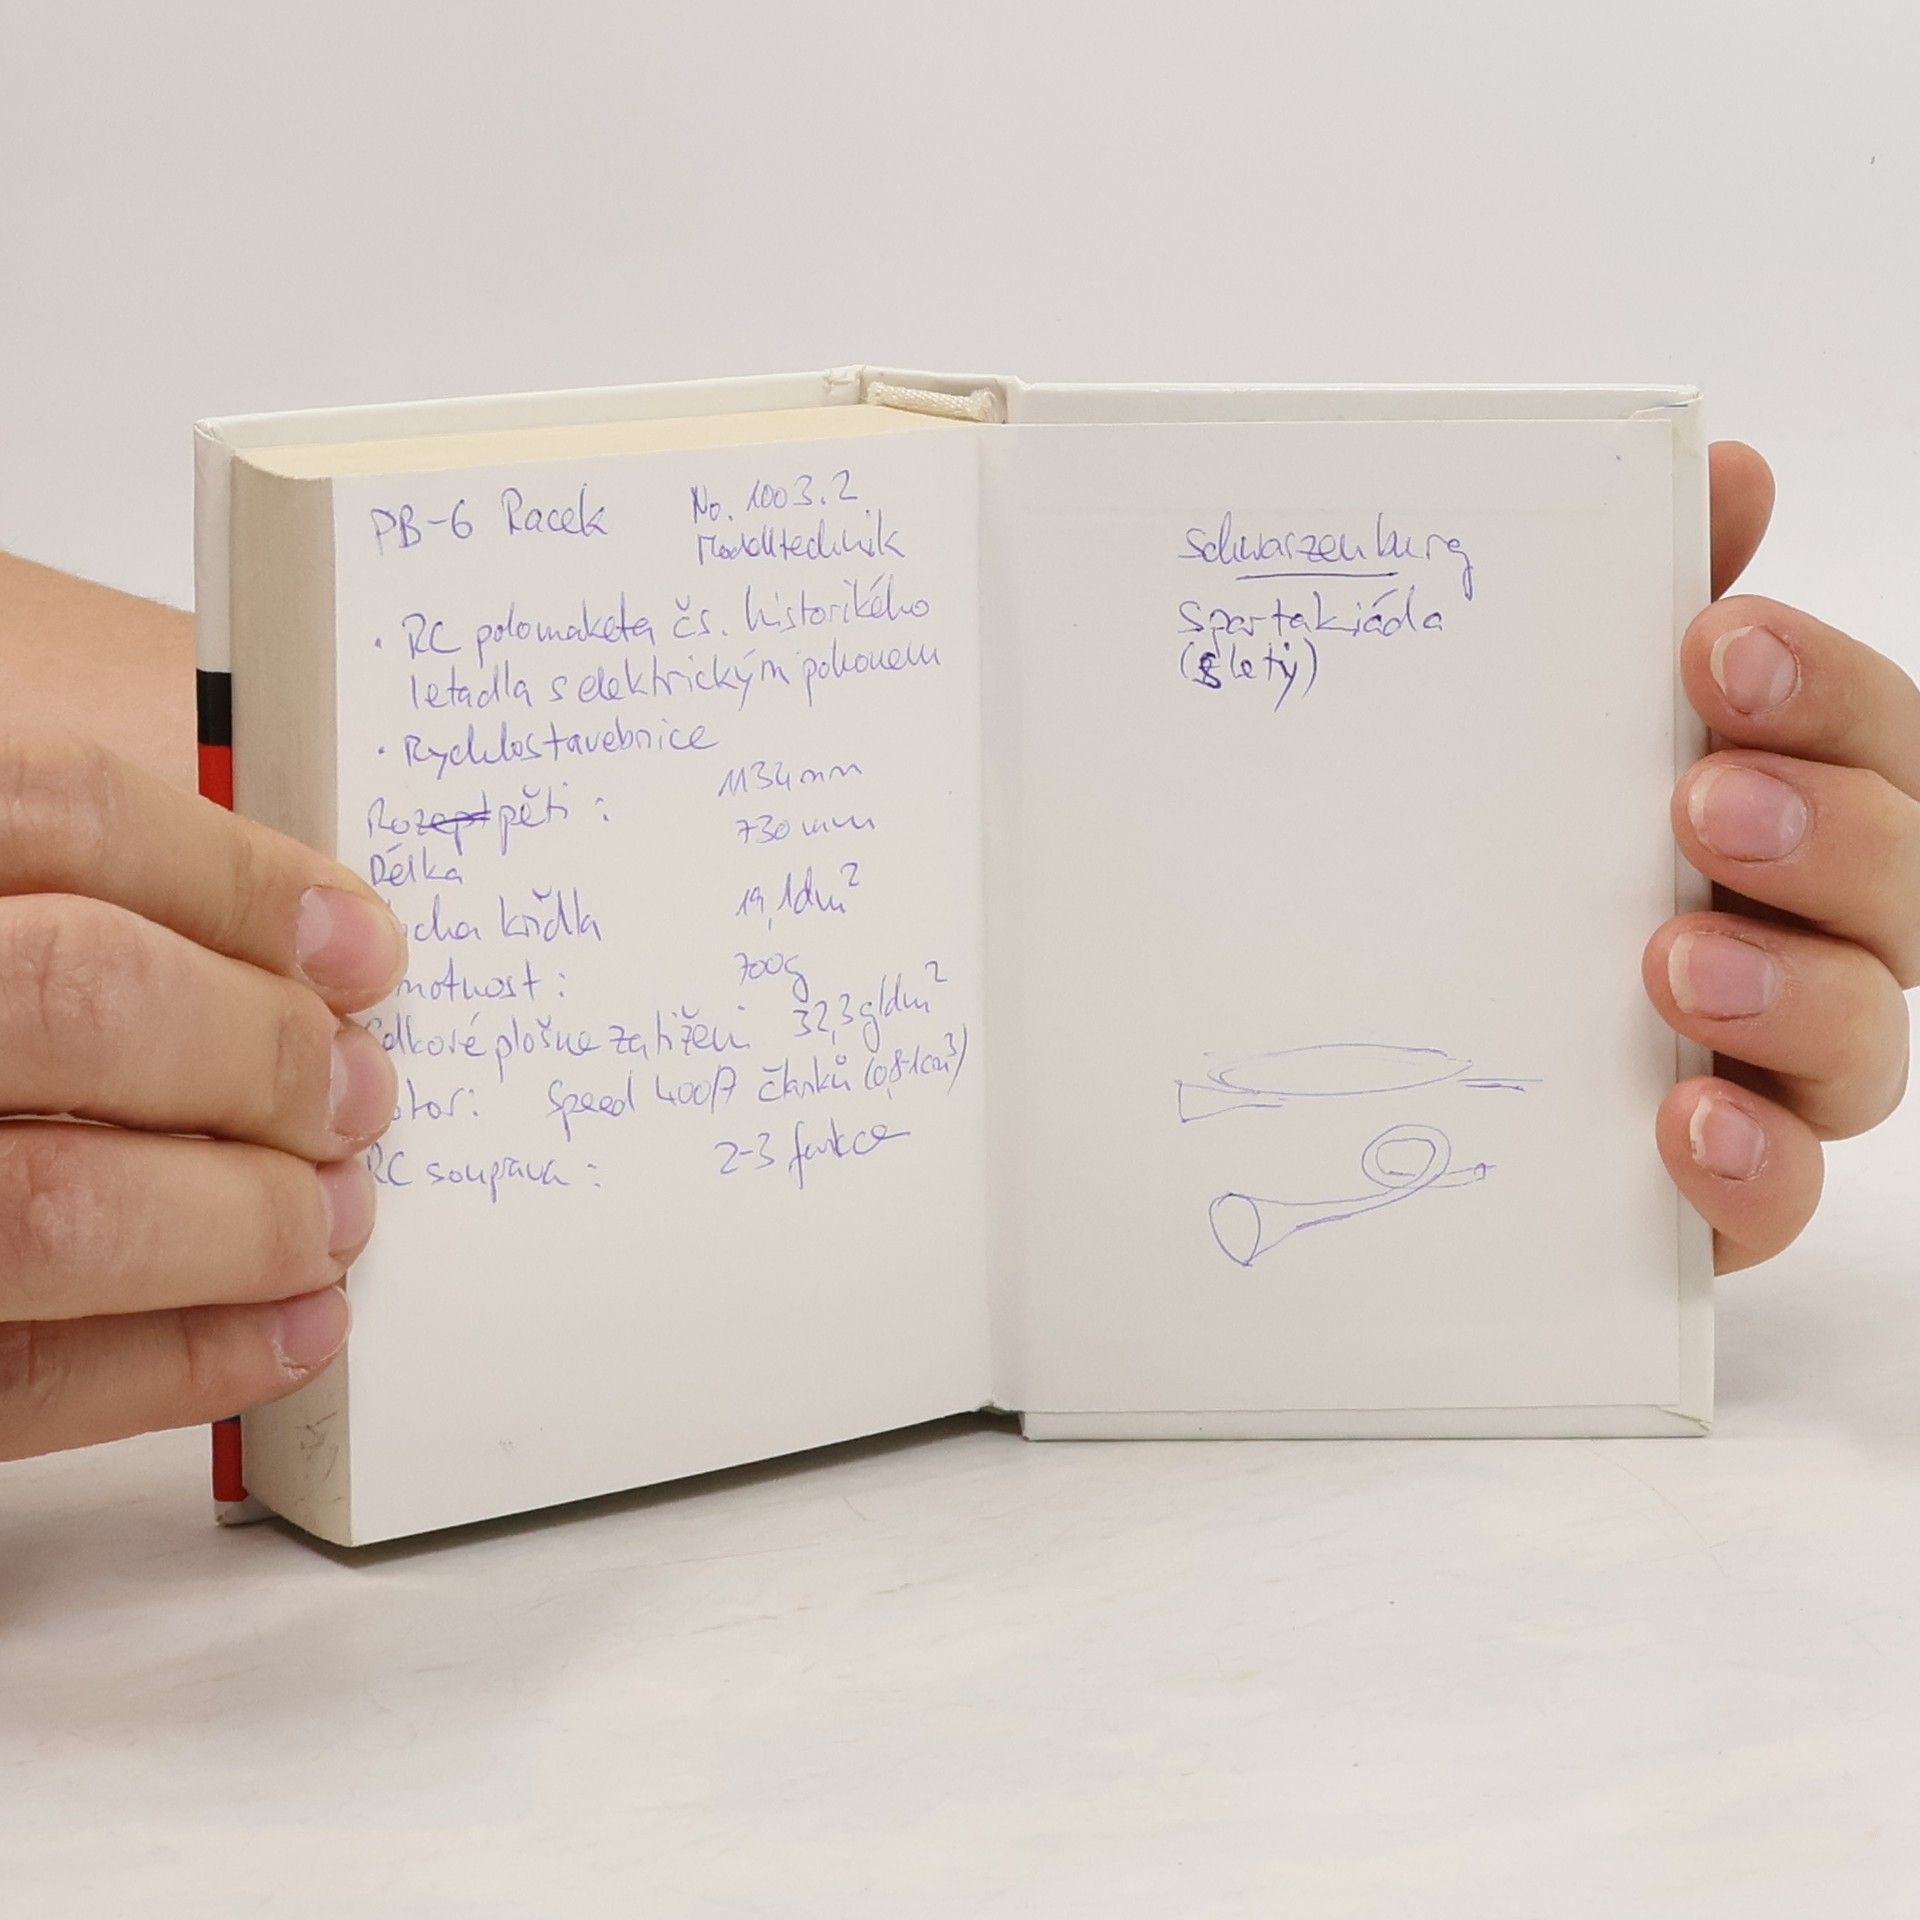 PB-6 Racek
No. 1003.2
Modelltechnik
• RC polomaketa čs. historikého
letadla s elektrickým pohonem
• Rychlostavebnice
Rozpěti : 1134mm
Délka 730 mm
ocha křídla 19,1dm²
motnost : 700g
elkové plošne zatižení 32,3g/dm²
otor: Speed 400/7 članků (0,8-1cm³)
RC souprava : 2-3 funkce
Schwarzenburg
Spartakiáda
(Slety)